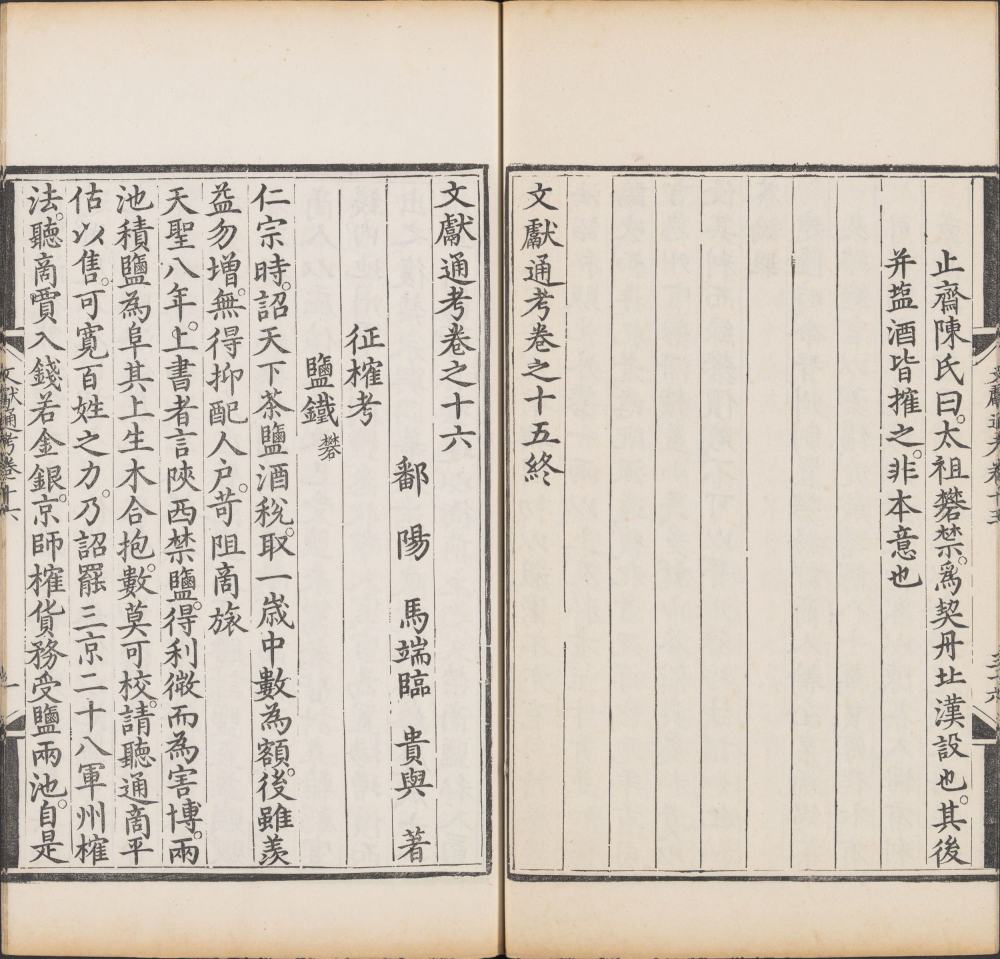 止齋陳氏曰太祖礬禁爲契丹北漢設也其後
并塩酒皆搉之非本意也
文獻通考卷之十五終
文獻通考卷之十六
鄱陽馬端臨貴與著
征榷考
鹽鐵礬
仁宗時詔天下茶鹽酒稅取一歲中數為額後雖羨
益勿增無得抑配人户苛阻商旅
天聖八年上書者言陝西禁鹽得利微而為害博兩
池積鹽為阜其上生木合抱數莫可校請聽通商平
估以售可寬百姓之力乃詔罷三京二十八軍州榷
法聽商賈入錢若金銀京師榷貨務受鹽兩池自是
文獻通考卷十六